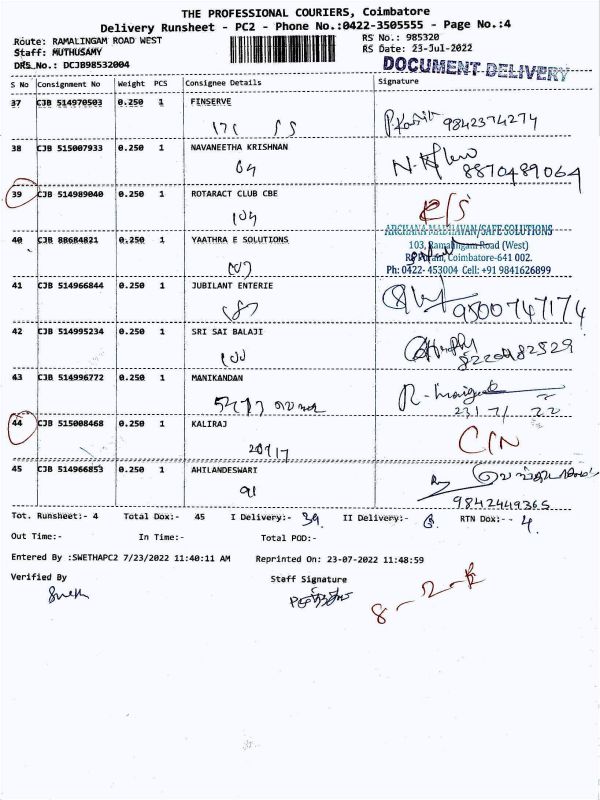 THE PROFESSIONAL COURIERS, Coimbatore
Delivery Runsheet - PC2 - Phone No.:0422-3505555 - Page No.:4
Route: RAMALINGAM ROAD WEST
RS No.: 985320
Staff: MUTHUSAMY
RS Date: 23-Jul-2022
DRS No.: DCJB98532004
DOCUMENT DELIVERY
S No Consignment No Weight PCS Consignee Details Signature
37 CJB 514970503 0.250 1 FINSERVE
9842374274
38 CJB 515007933 0.250 1 NAVANEETHA KRISHNAN
8870489064
39 CJB 514989040 0.250 1 ROTARACT CLUB CBE
104 R/S
ARCHANA MADHAVAN/SAFE SOLUTIONS
40 CJB 88684821 0.250 1 YAATHRA E SOLUTIONS
103, Ramalingam Road (West)
R.S. Puram, Coimbatore-641 002.
Ph: 0422- 453004 Cell: +91 9841626899
41 CJB 514966844 0.250 1 JUBILANT ENTERIE
9500747174
42 CJB 514995234 0.250 1 SRI SAI BALAJI
100 8220482529
43 CJB 514996772 0.250 1 MANIKANDAN
44 CJB 515008468 0.250 1 KALIRAJ
C/N
45 CJB 514966853 0.250 1 AHILANDESWARI
91
9842449365
Tot. Runsheet:- 4 Total Dox:- 45 I Delivery:- 39 II Delivery:- RTN Dox:-- 4
Out Time:- In Time:- Total POD:-
Entered By :SWETHAPC2 7/23/2022 11:40:11 AM Reprinted On: 23-07-2022 11:48:59
Verified By Staff Signature